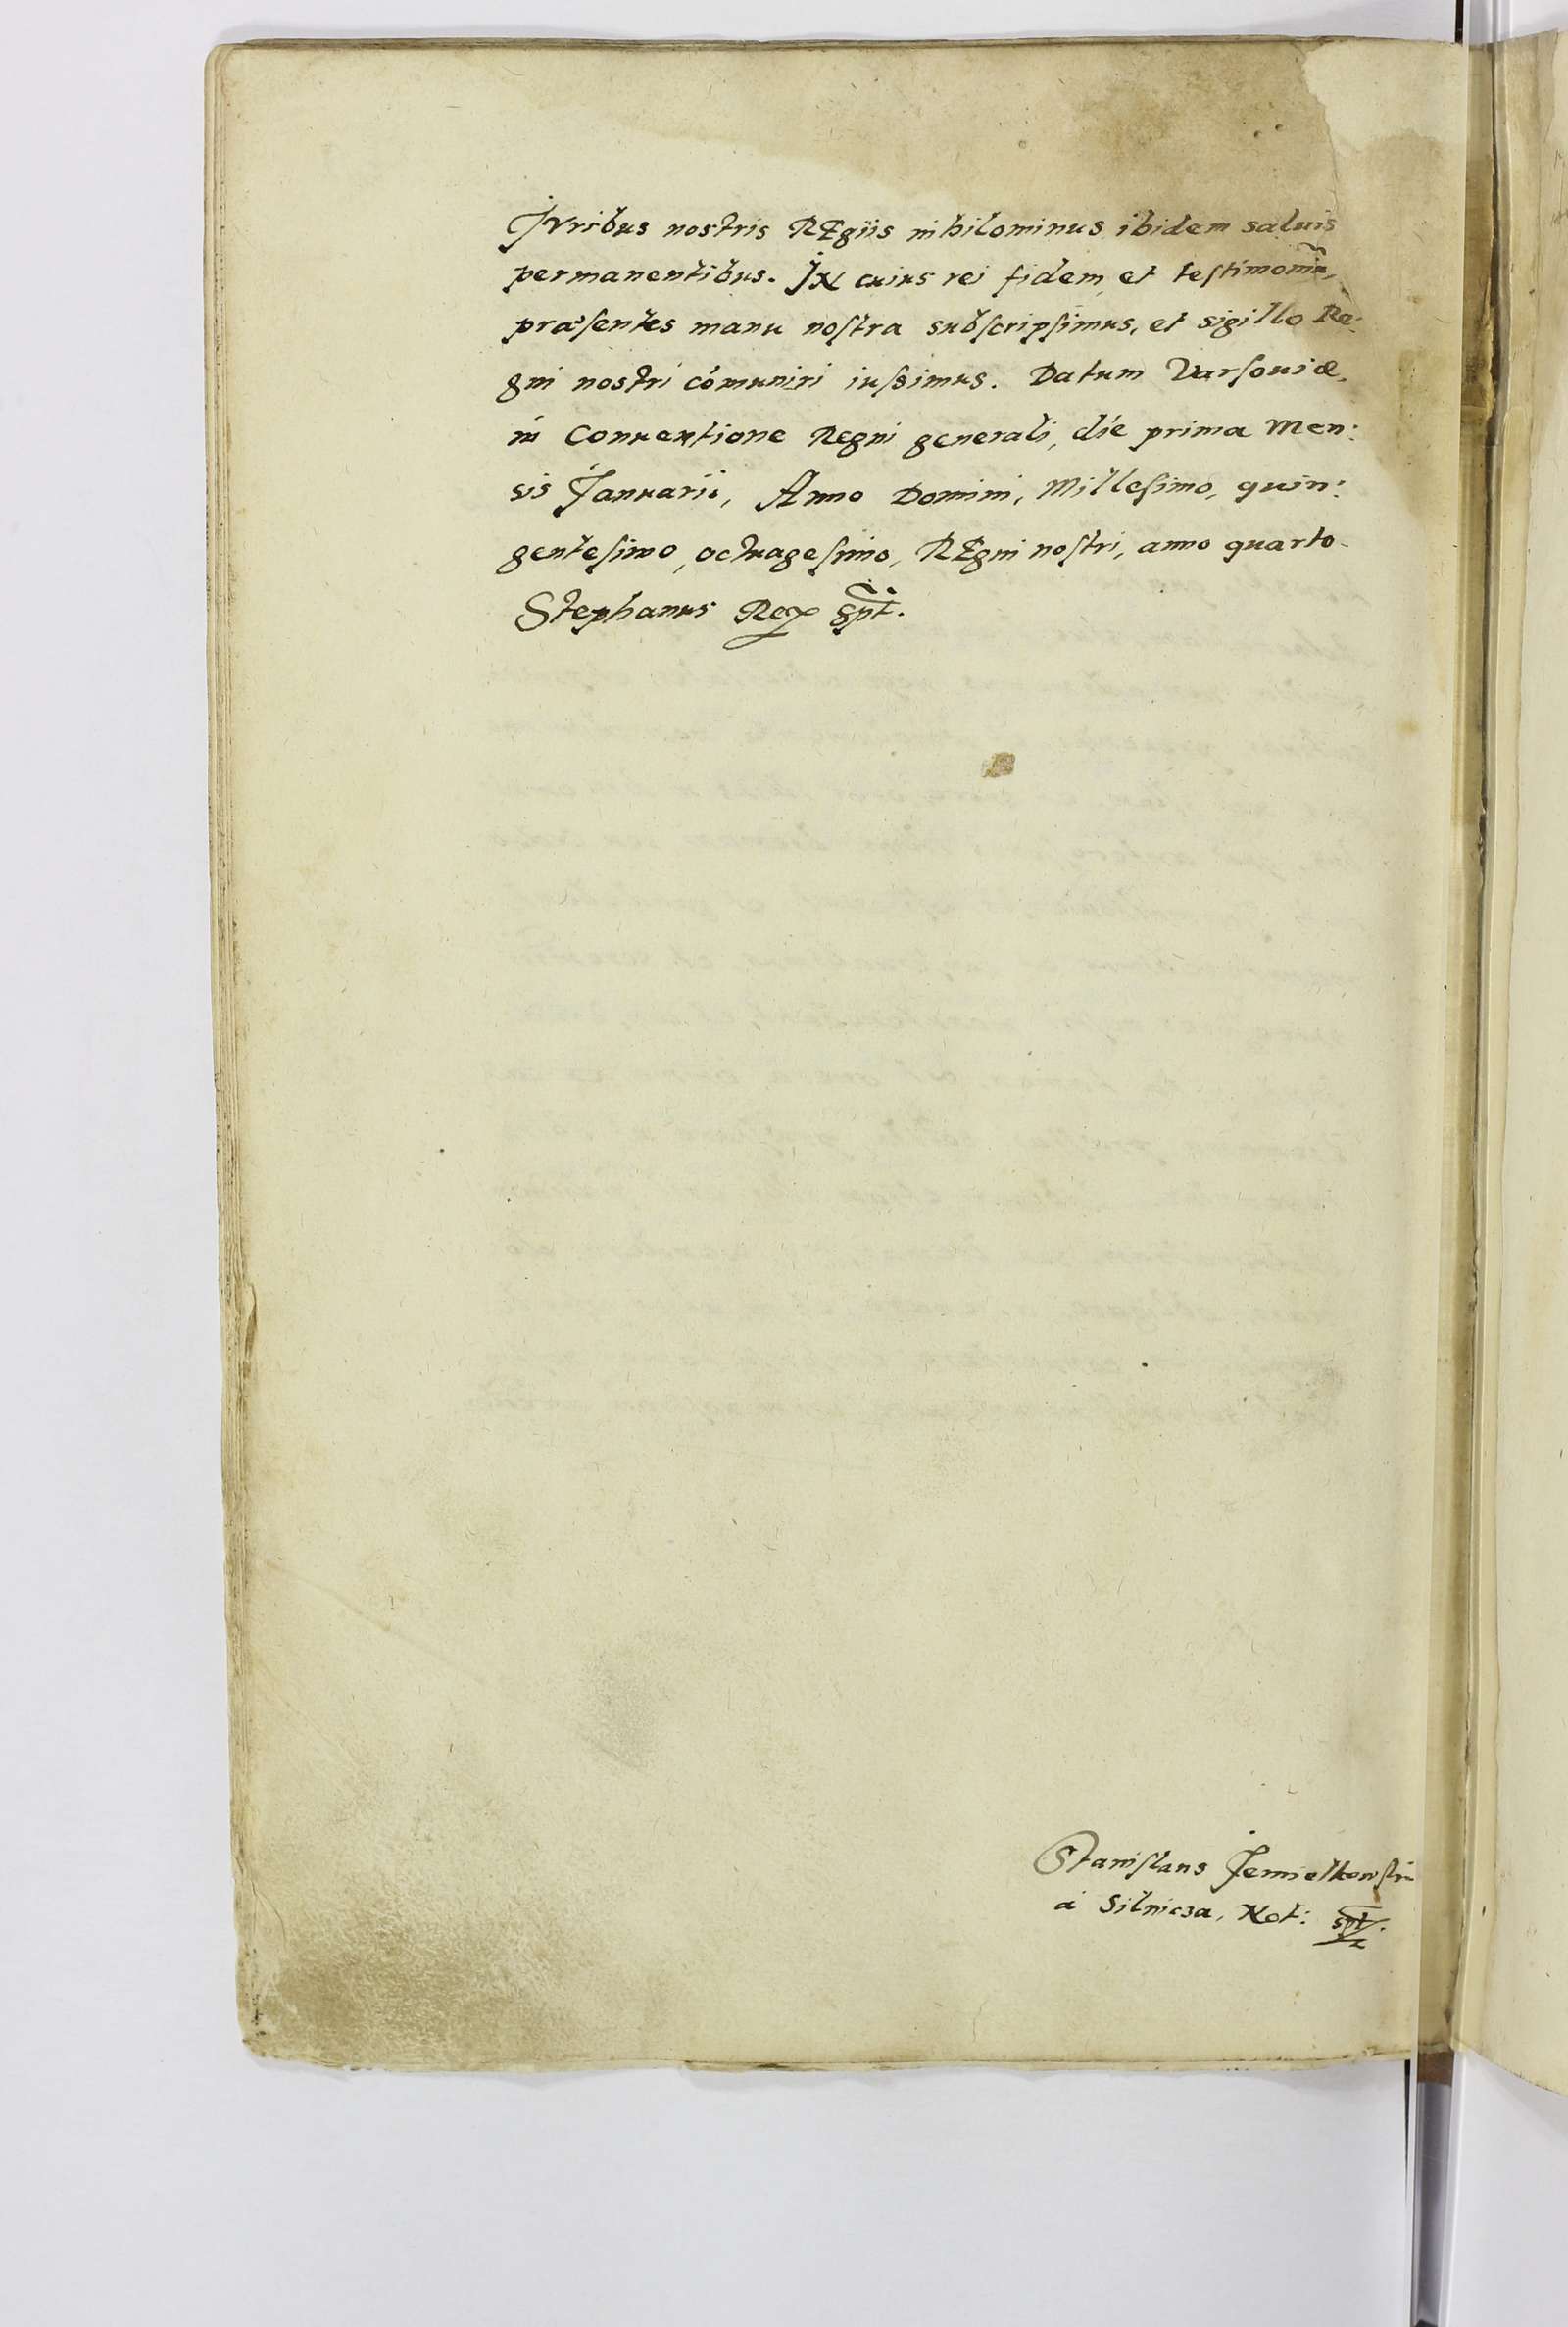 Jvribus nostris REgiis nihilominus ibidem saluis
permanentibus. IN cuius rei fidem et testimoniũ,
præsentes manu nostra subscripsimus, et sigillo Re:
gni nostri cómuniri iussimus. Datum Varsouiæ,
in Conuentione Regni generali, die prima Men:
sis Januarii, Anno Domini, Millesimo, quin:
gentesimo, octuagesimo, REgni nostri, anno quarto.
Stephanus Rex spt.
Stanislaus Jemielkowski
á Silnicza, Not: spt.